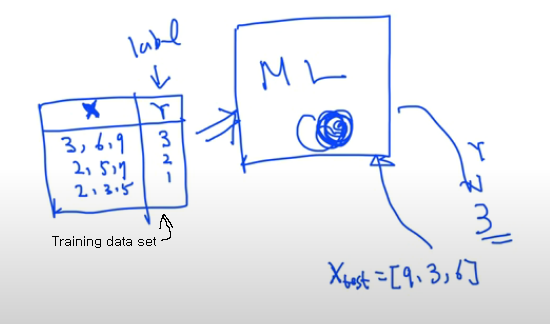 label
X Y
3, 6, 9 3
2, 5, 7 2
2, 3, 5 1
Training data set
ML
Y
3
Xtest = [9, 3, 6]